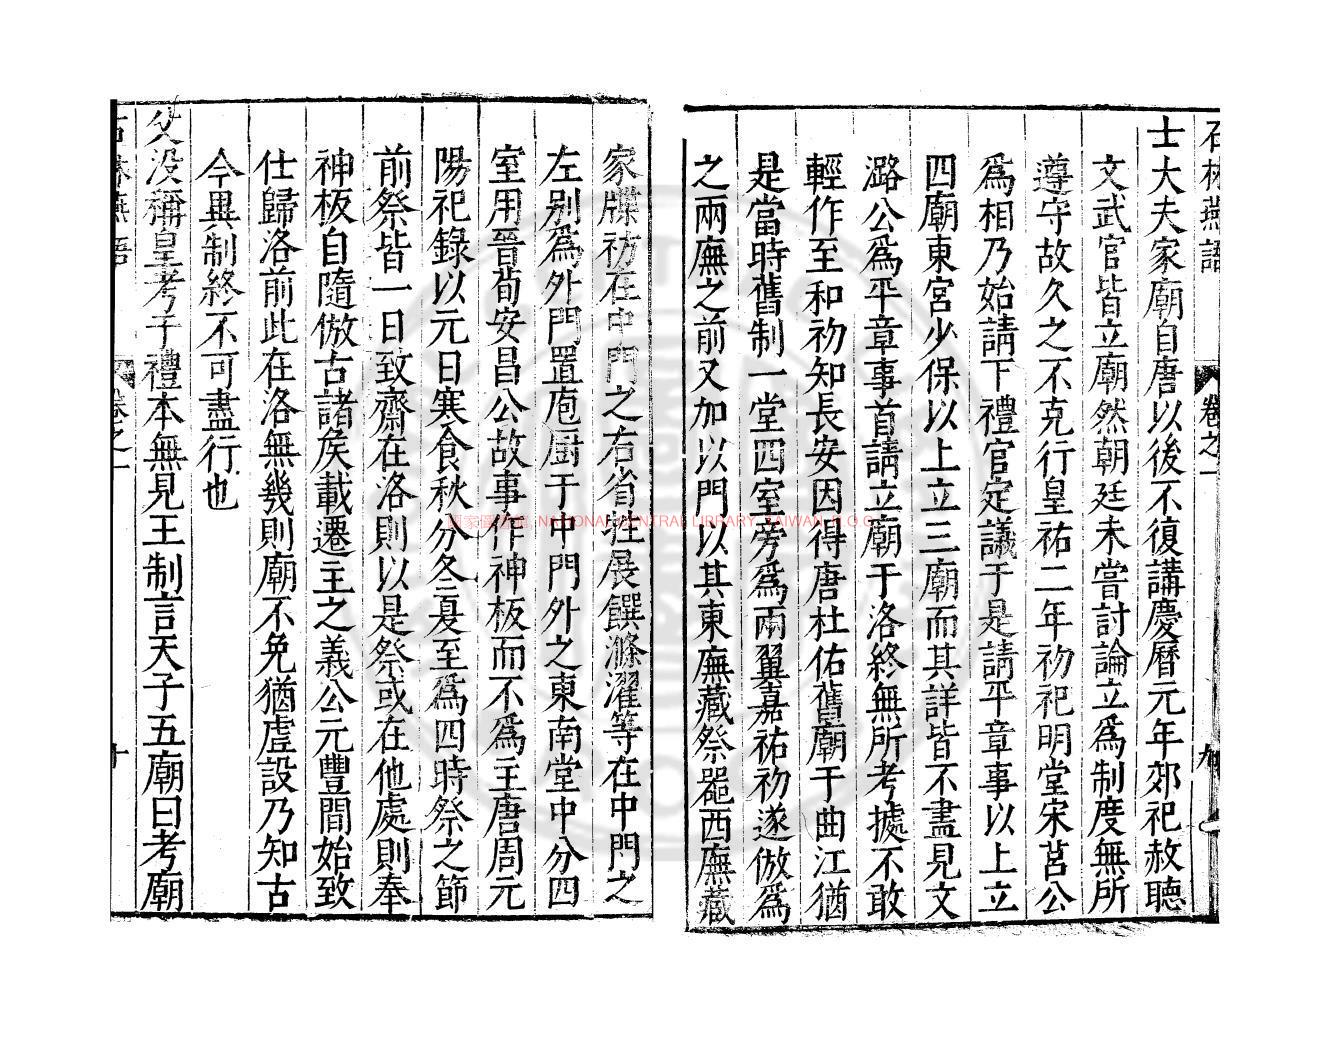 石林燕語 卷之一 九
士大夫家廟自唐以後不復講慶曆元年郊祀赦聽
文武官皆立廟然朝廷未嘗討論立爲制度無所
遵守故久之不克行皇祐二年初祀明堂宋莒公
爲相乃始請下禮官定議于是請平章事以上立
四廟東宮少保以上立三廟而其詳皆不盡見文
潞公爲平章事首請立廟于洛終無所考據不敢
輕作至和初知長安因得唐杜佑舊廟于曲江猶
是當時舊制一堂四室旁爲兩翼嘉祐初遂倣爲
之兩廡之前又加以門以其東廡藏祭器西廡藏
家牒祊在中門之右省牲展饌滌濯等在中門之
左别爲外門置庖厨于中門外之東南堂中分四
室用晉荀安昌公故事作神板而不爲主唐周元
陽祀錄以元日寒食秋分冬夏至爲四時祭之節
前祭皆一日致齋在洛則以是祭或在他處則奉
神板自隨倣古諸矦載遷主之義公元豐間始致
仕歸洛前此在洛無幾則廟不免猶虛設乃知古
今異制終不可盡行也
父没稱皇考于禮本無見王制言天子五廟曰考廟
石林燕語 卷之一 十
國家圖書館 NATIONAL CENTRAL LIBRARY, TAIWAN, R.O.C.